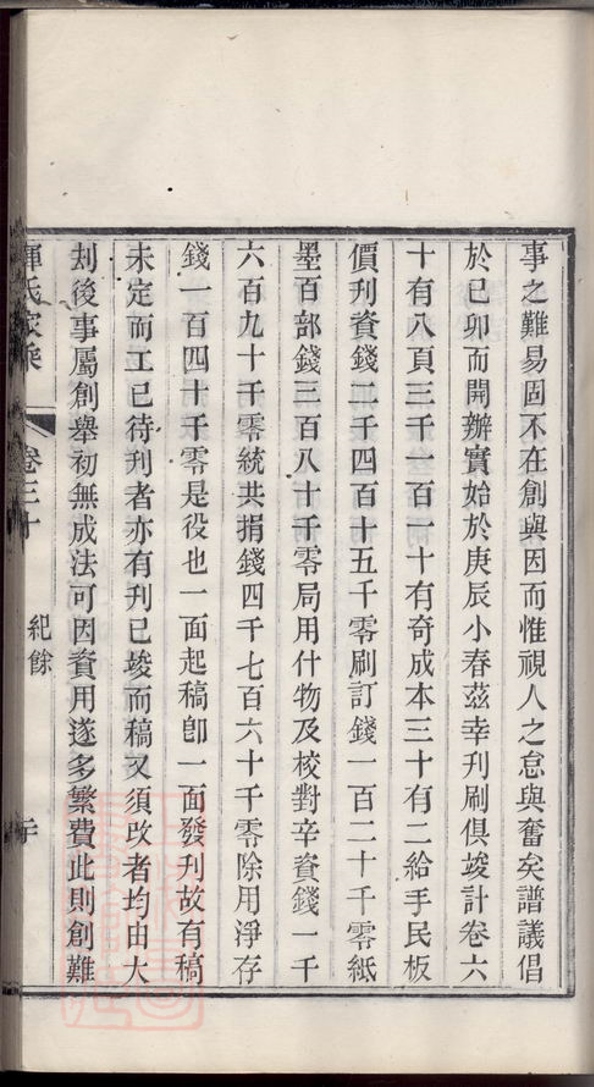 事之難易固不在創與因而惟視人之怠與奮矣譜議倡
於己卯而開辦實始於庚辰小春茲幸刋刷俱竣計卷六
十有八頁三千一百一十有奇成本三十有二給手民板
價刋資錢二千四百十五千零刷訂錢一百二十千零紙
墨百部錢三百八十千零局用什物及校對辛資錢一千
六百九十千零統共捐錢四千七百六十千零除用淨存
錢一百四十千零是役也一面起稿卽一面發刋故有稿
未定而工已待刋者亦有刋已竣而稿又須改者均由大
刦後事屬創舉初無成法可因資用遂多繁費此則創難
氏家乘 卷三十 紀餘